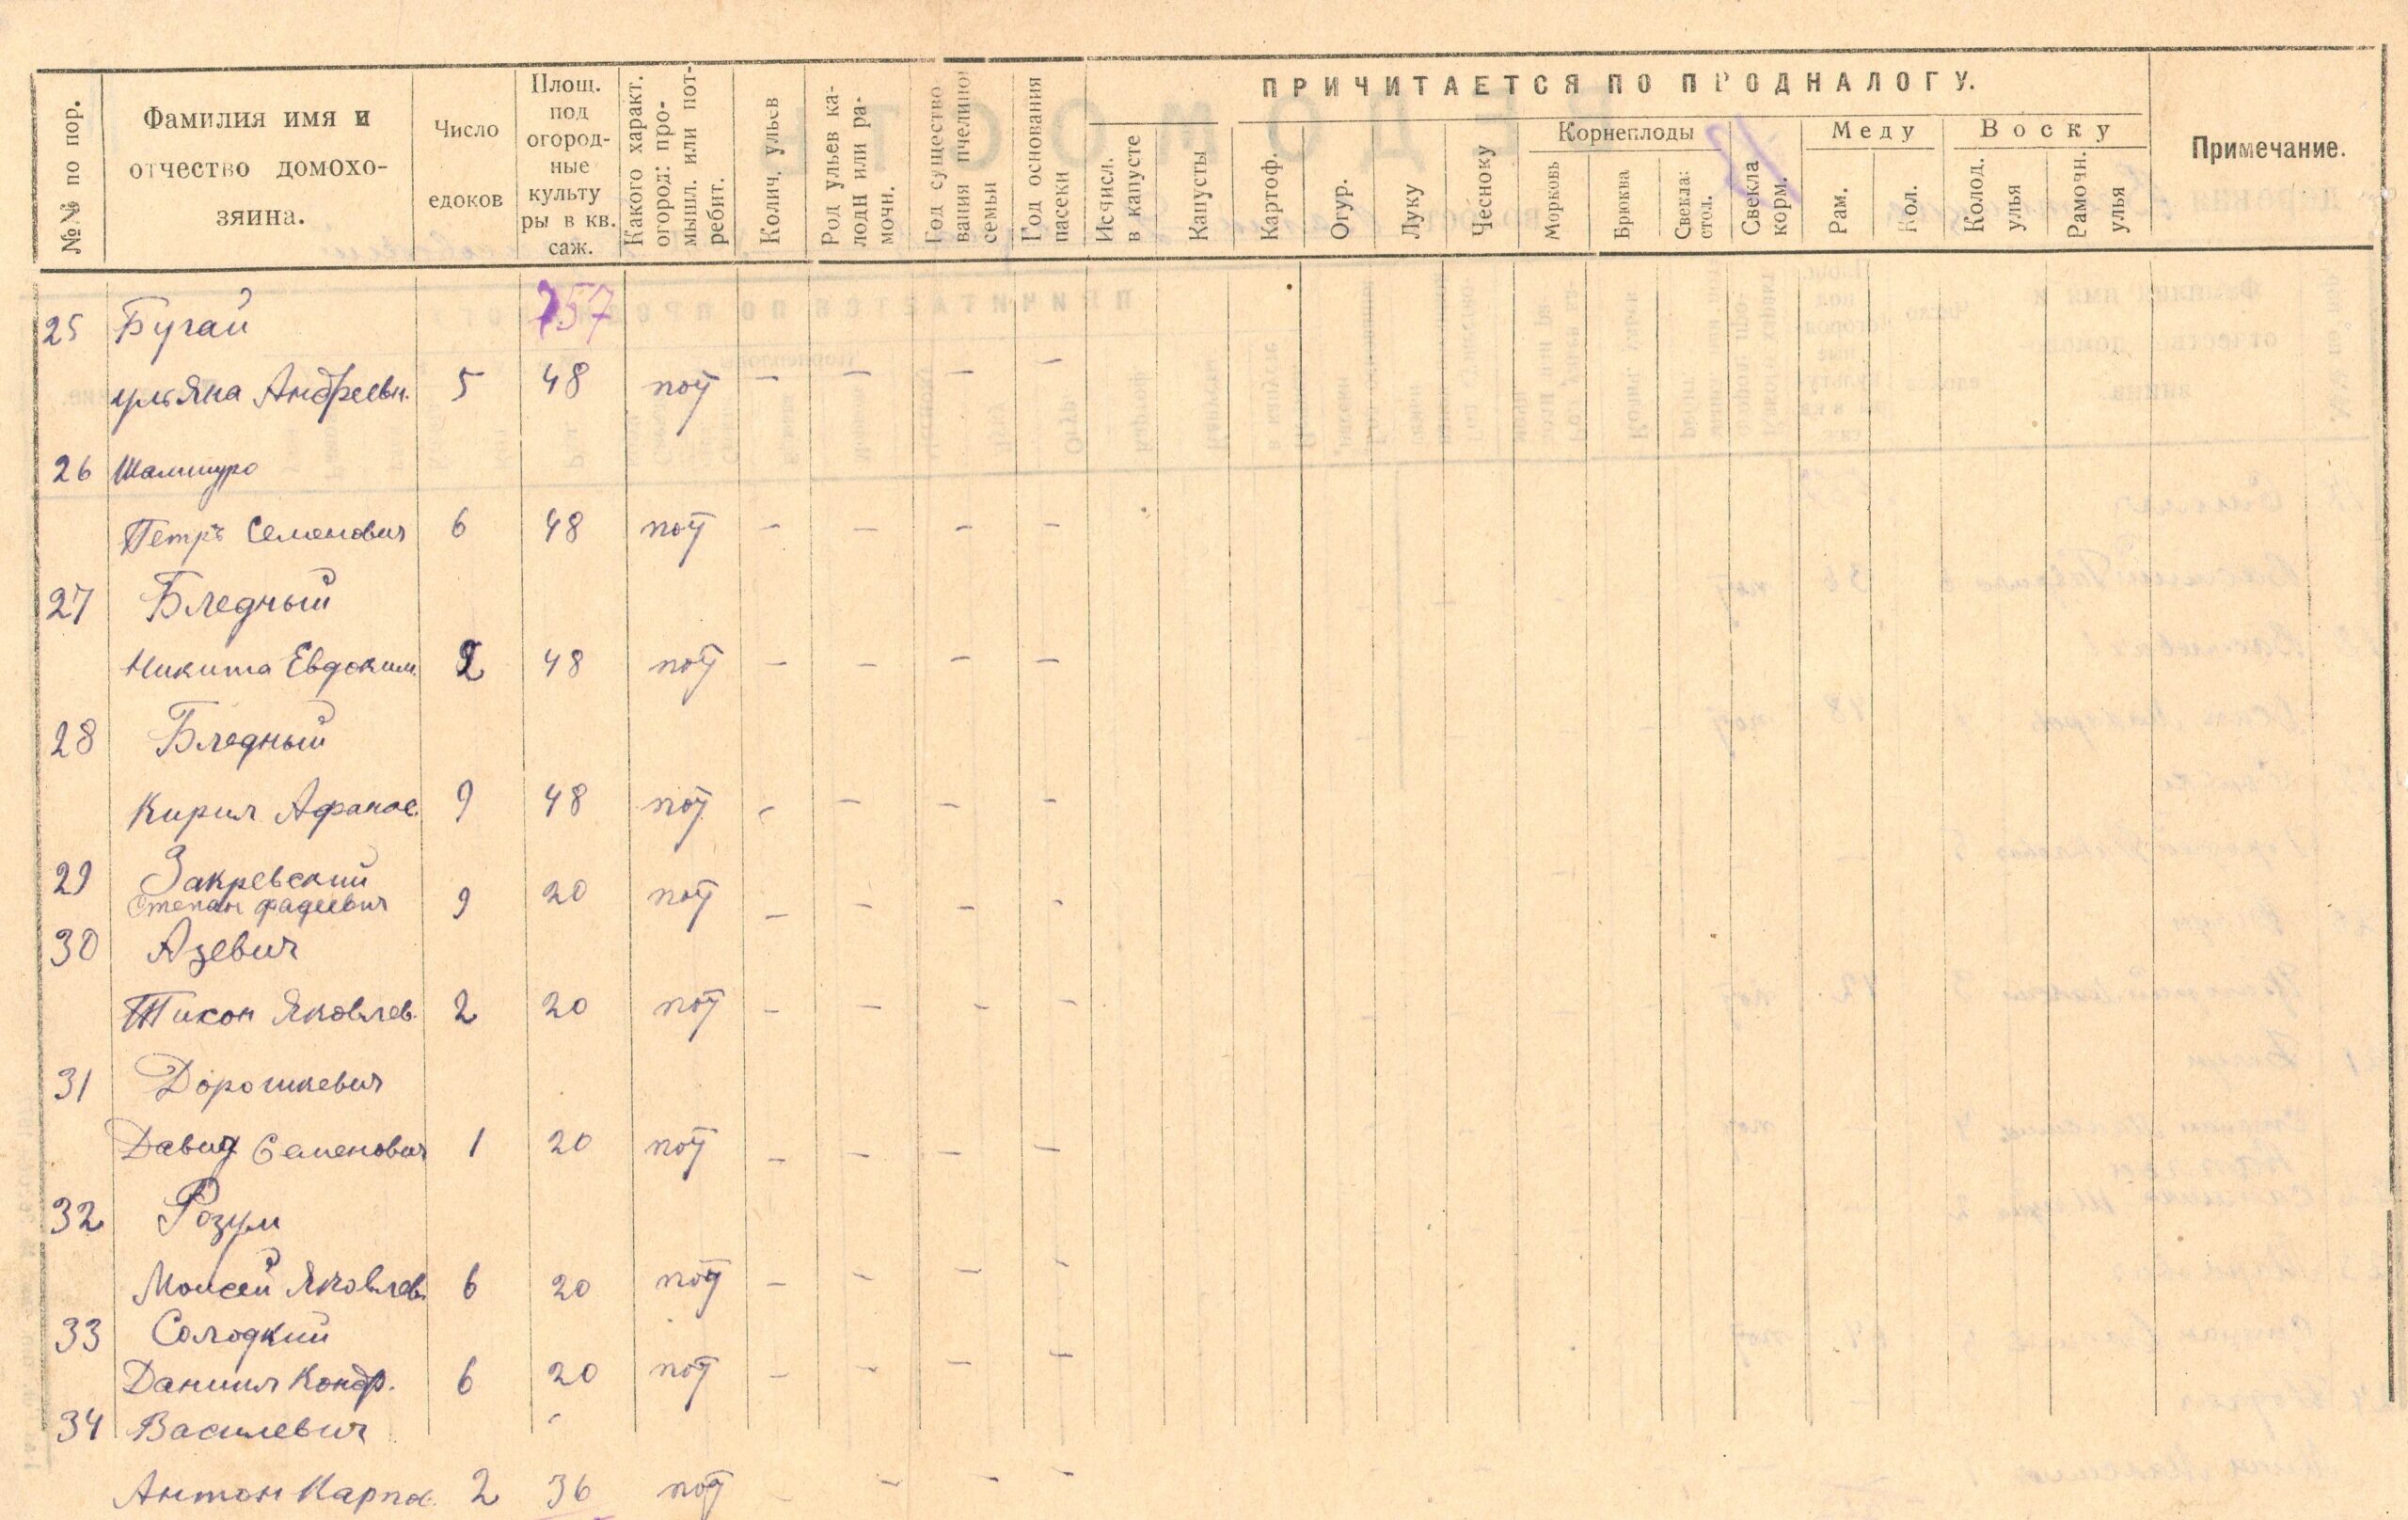 №№ по пор.
Фамилия имя и
отчество домохо-
зяина.
Число
едоков
Площ.
под
огород-
ные
культу
ры в кв.
саж.
Какого характ.
огород: про-
мышл. или пот-
ребит.
Колич. ульев
Род ульев ка-
лодн или ра-
мочн.
Год существо-
вания пчелиной
семьи
Год основания
пасеки
ПРИЧИТАЕТСЯ ПО ПРОДНАЛОГУ.
Исчисл.
в капусте
Капусты
Картоф.
Огур.
Луку
Чесноку
Корнеплоды
Морковь
Брюква
Свекла:
стол.
Свекла
корм.
Меду
Рам.
Кол.
Воску
Колод.
улья
Рамочн.
улья
Примечание.
757
25 Бугай
ульяна Андреевн. 5 48 пот — — — —
26 Шаммуро
Петръ Семенович 6 48 пот — — — —
27 Бледный
Никита Евдоким. 2 48 пот — — — —
28 Бледный
Кирил Афанас. 9 48 пот — — — —
29 Закревский
Степан фадеевич 9 20 пот — — — —
30 Азевич
Тихон Яковлев. 2 20 пот — — — —
31 Дорошкевич
Давид Семенович 1 20 пот — — — —
32 Розум
Моисей Яковлев. 6 20 пот — — — —
33 Солодкий
Даниил Кондр. 6 20 пот — — — —
34 Василевич
Антон Карпов. 2 36 пот — — — —